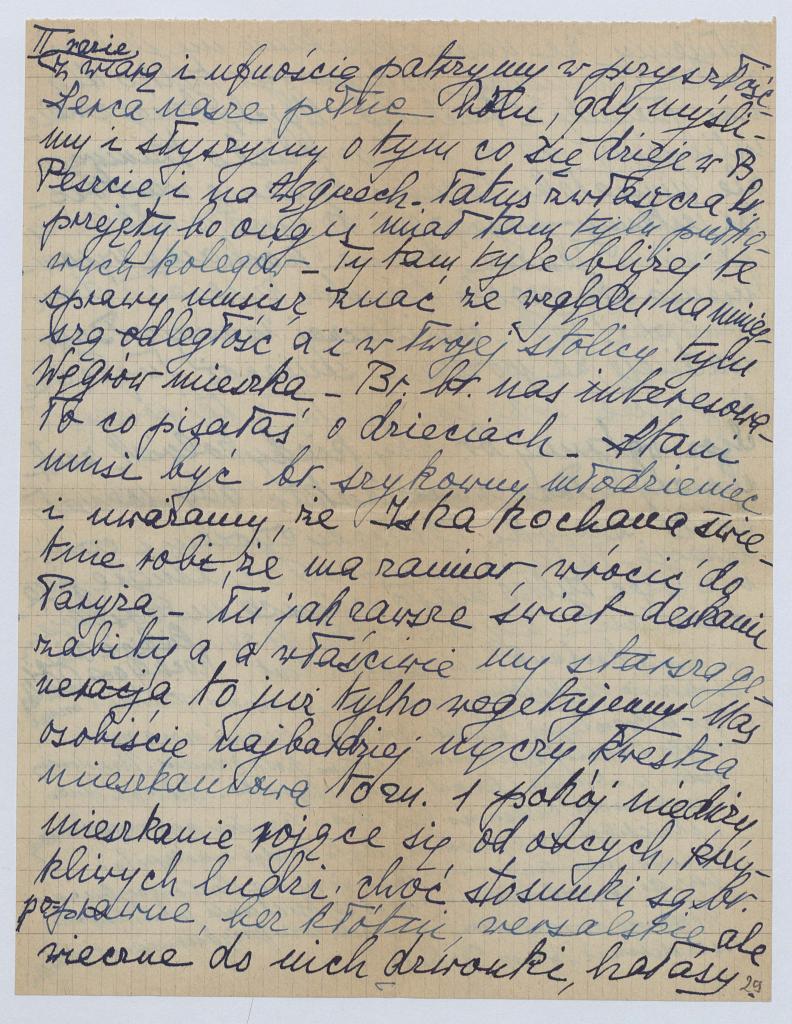 II razie
z wiarą i ufnością patrzymy w przyszłość –
Serca nasze pełne bólu, gdy myśli-
my i słyszymy o tym co się dzieje w B.
Peszcie, i na Węgrzech – Tatuś zwłaszcza br.
przejęty bo ongiś miał tam tylu pułko-
wych kolegów – Ty tam tyle bliżej te
sprawy musisz znać ze względu na mniej-
szą odległość a i w Twojej stolicy tylu
Węgrów mieszka – Br. br. nas interesowa-
ło co pisałaś o dzieciach – Stani
musi być br. szykowny młodzieniec
i uważamy, że Iska kochana świe-
tnie robi, że ma zamiar wrócić do
Paryża – Tu jak zawsze świat deskami
zabity a a właściwie my starsza ge-
neracja to już tylko wegetujemy – Nas
osobiście najbardziej męczy kwestia
mieszkaniowa to zn. 1 pokój nieduży
mieszkanie rojące się od obcych, krzy-
kliwych ludzi. choć stosunki są br.
poprawne, bez kłótni, wersalskie ale
wieczne do nich dzwonki, hałasy
29